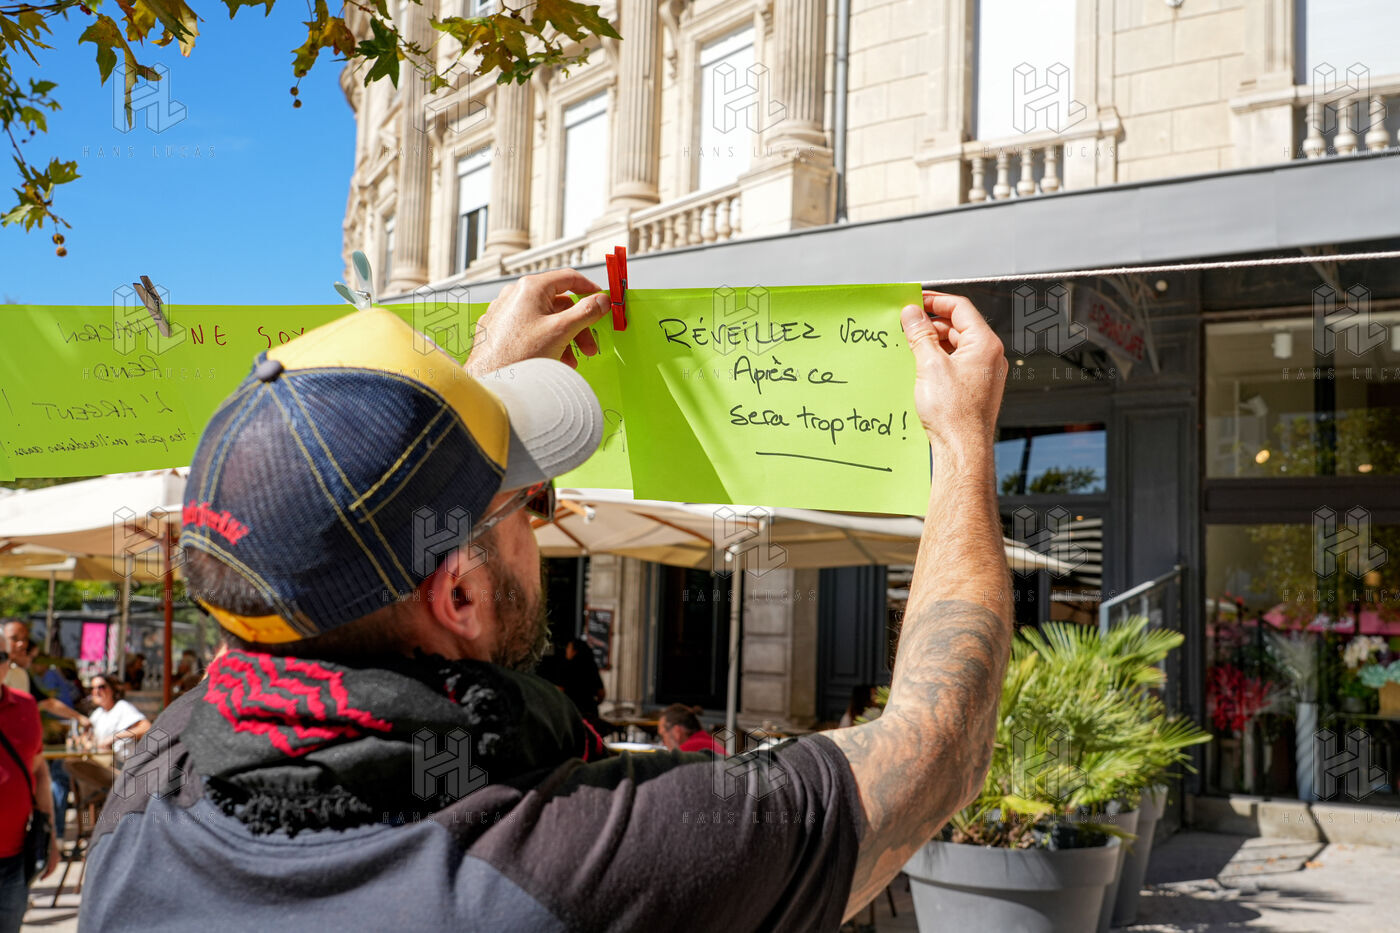 RÉVEILLEZ Vous.
Après ce
sera trop tard !
NE SOY
MACRON
REND
L'ARGENT !
HANS LUCAS